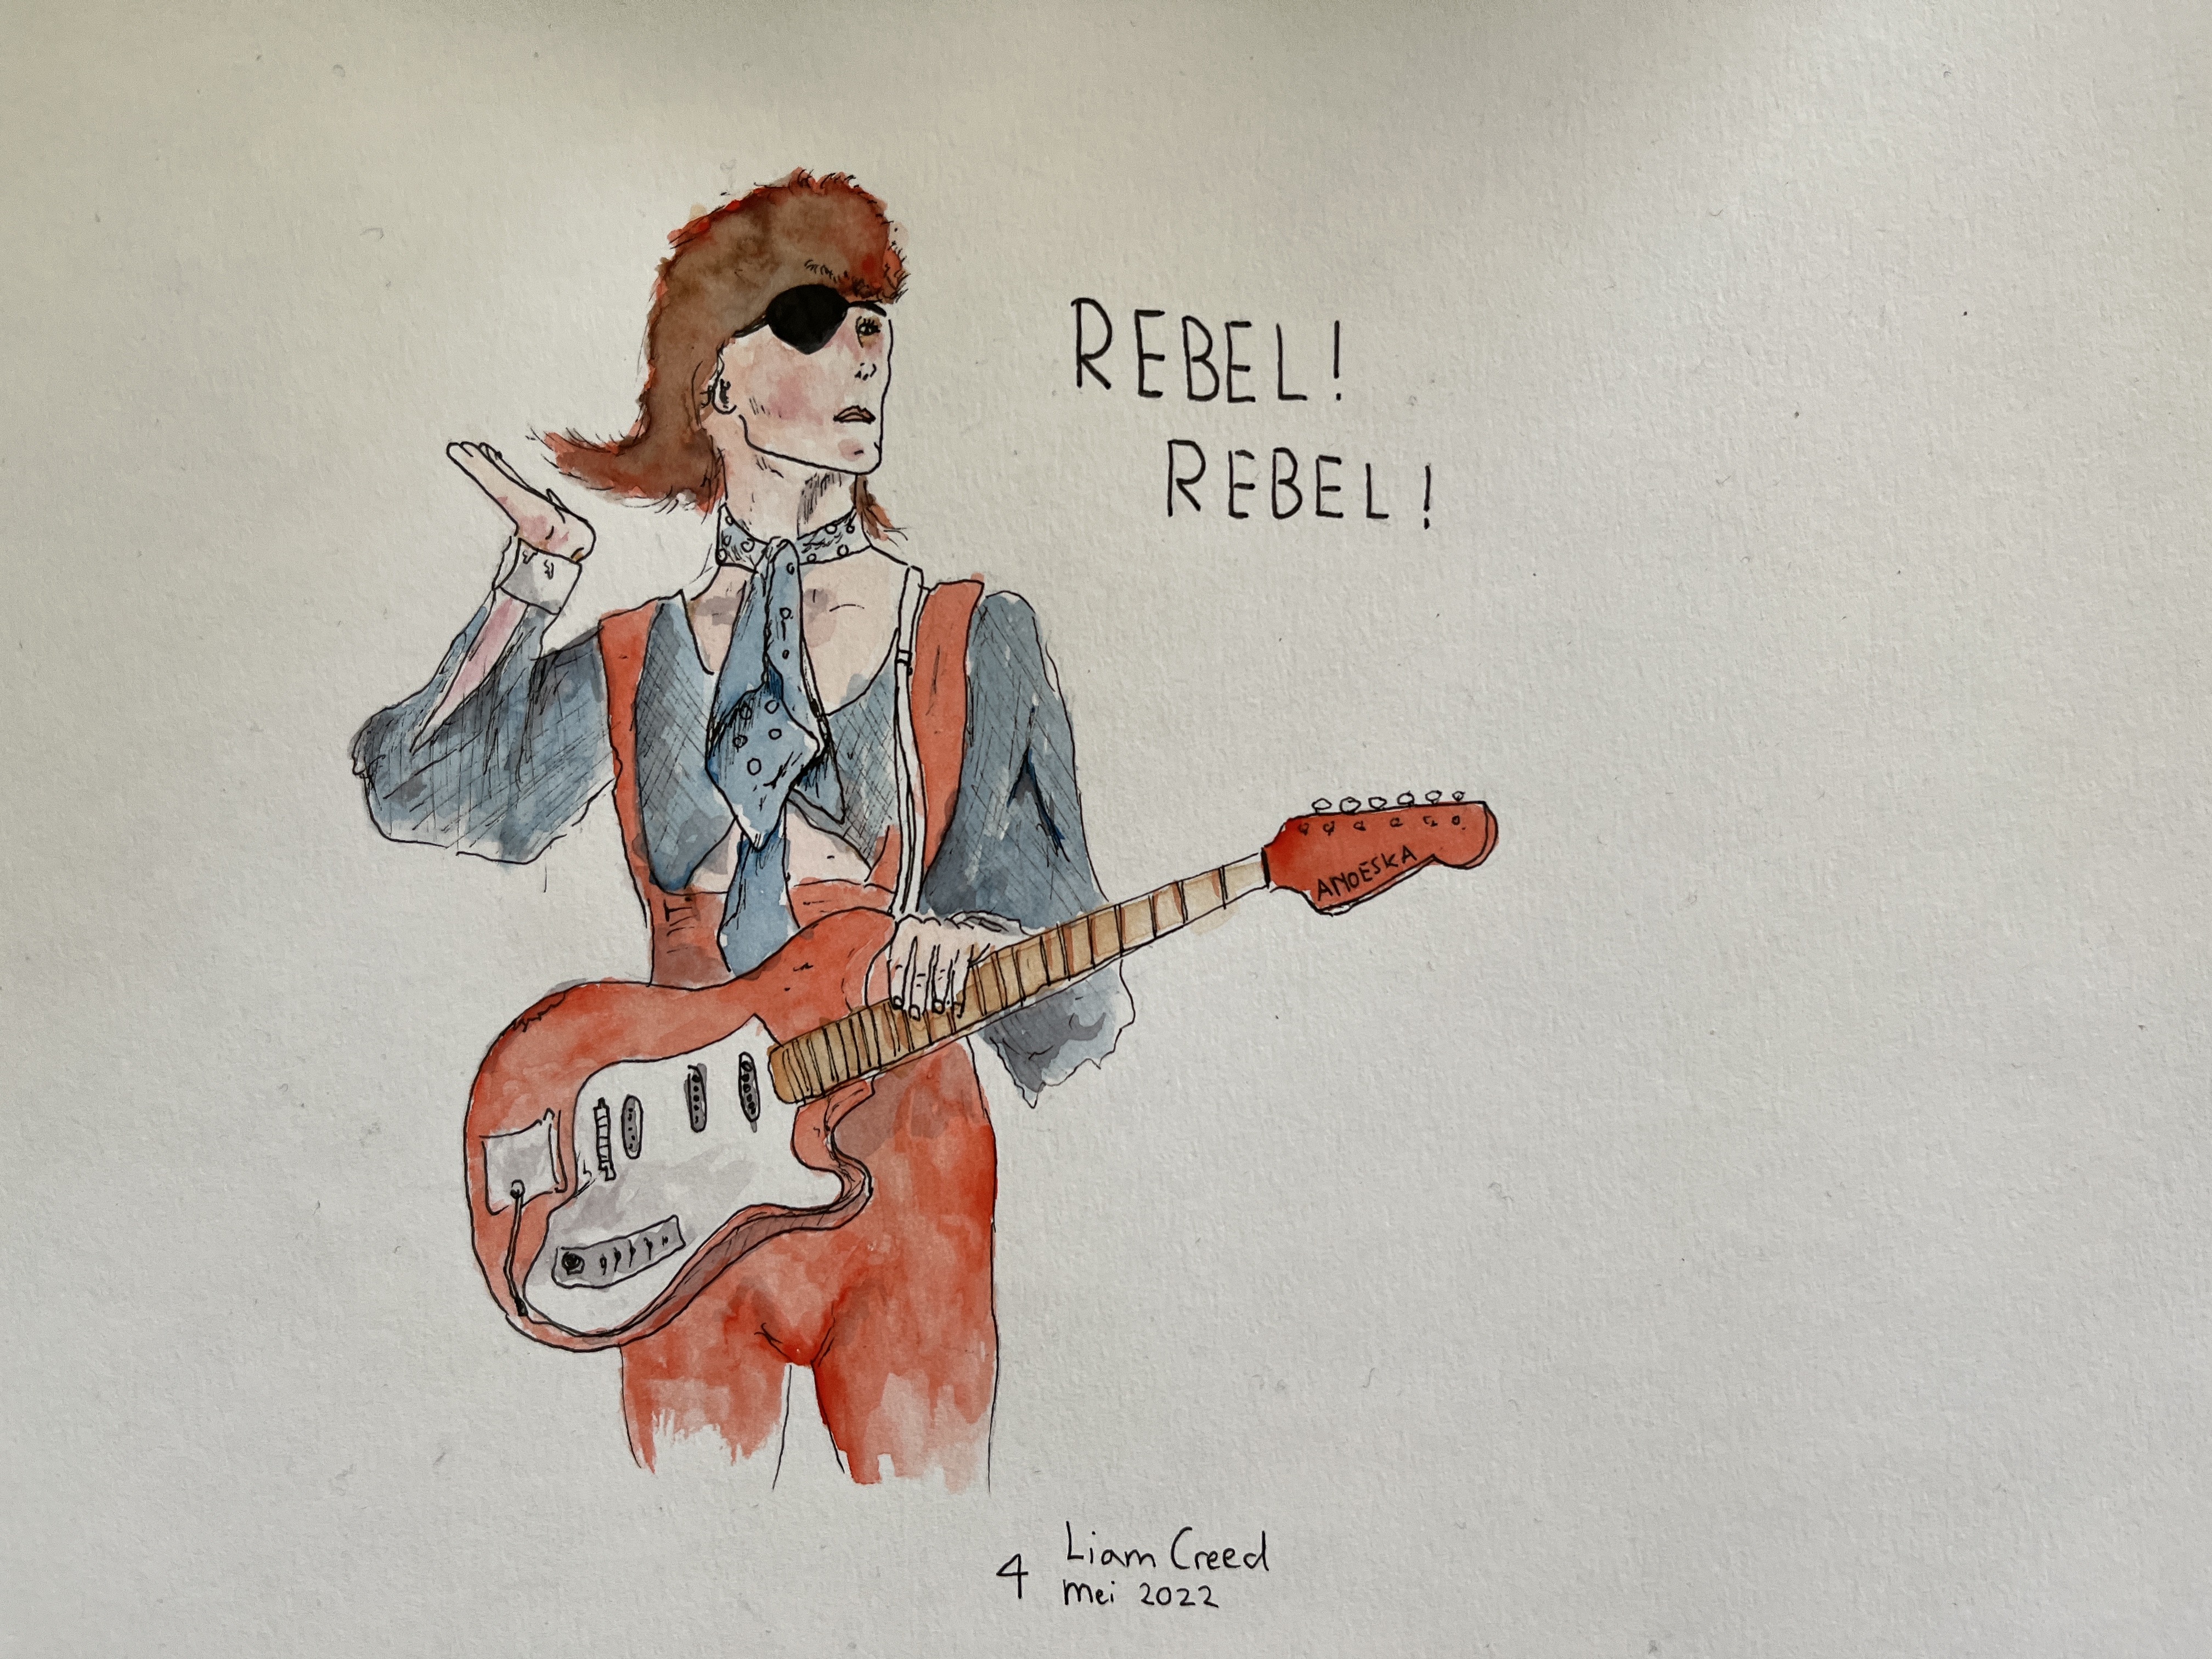 REBEL!
REBEL!
ANOESKA
4 Liam Creed
mei 2022